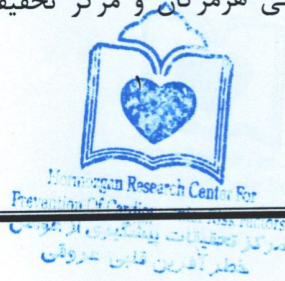 ی هرمزگان و مرکز تحقیقا
Hormozgan Research Center For
Prevention Of
مرکز تحقیقات پیشگیری از عوامل
خطر آفرین قلبی عروقی